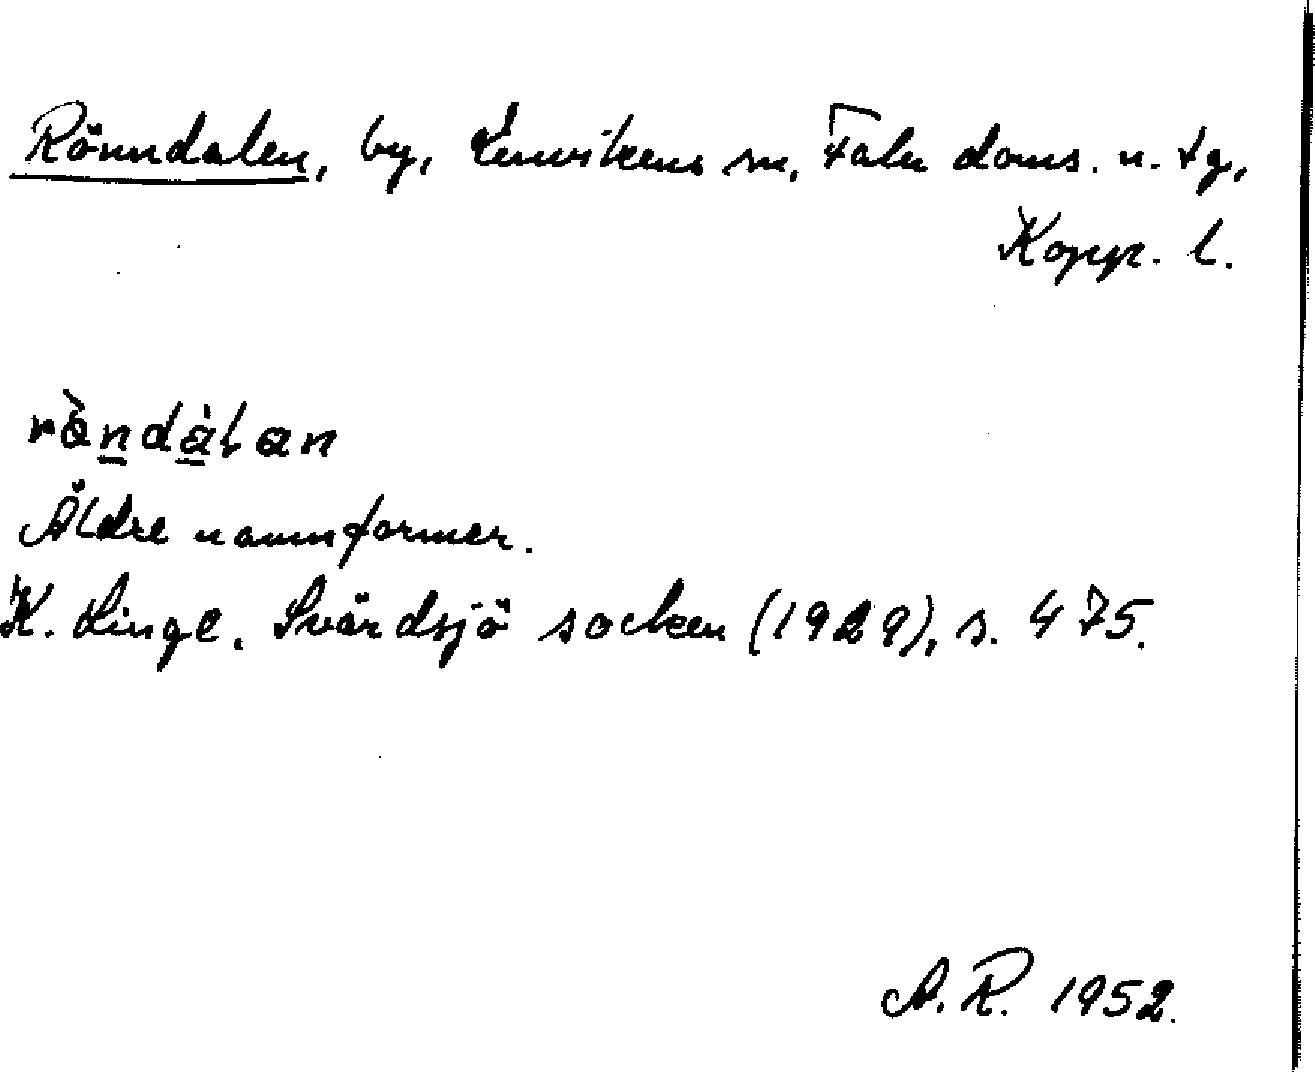 Rönndalen, by, Envikens sn, Falu doms. o. tg,
Kopp. l.
rä̀ndàlan
Äldre namnformer.
K. Linge. Svärdsjö socken (1929), s. 475.
A. R. 1952.